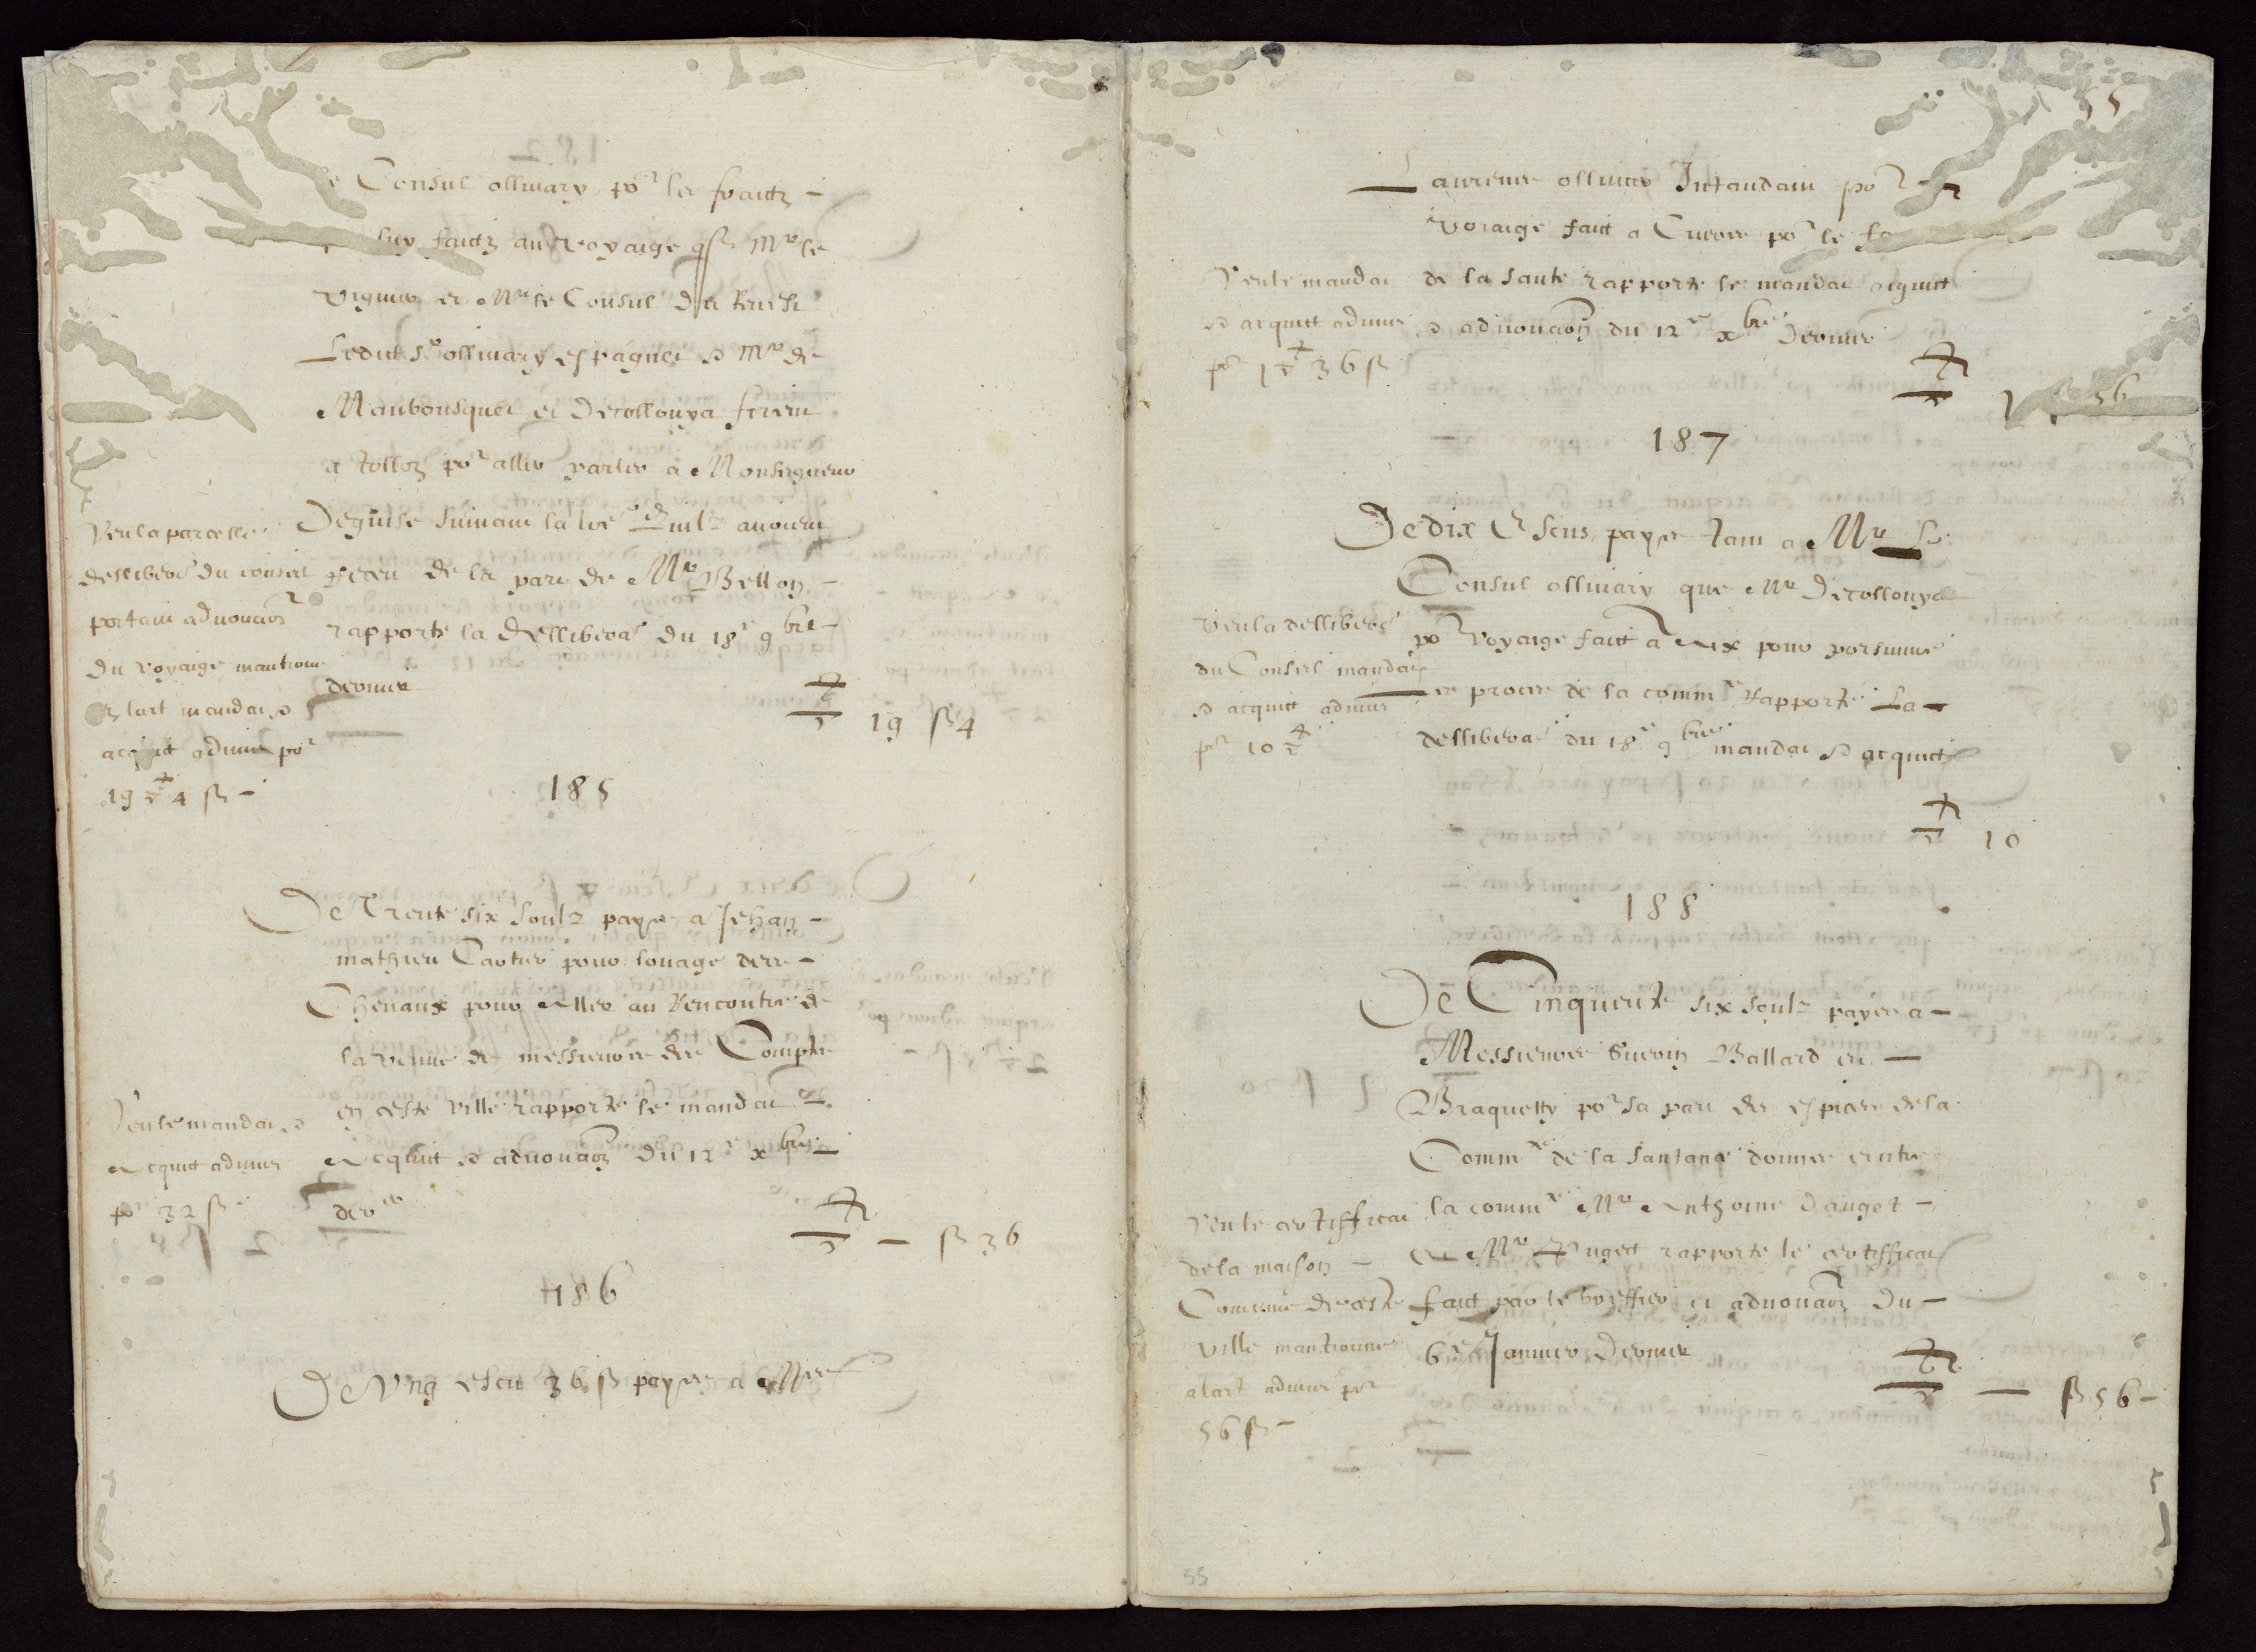 Consul ollivary po^r les fraictz
luy faictz au voyaige q^s M^r le
Viguier et M^r le Consul du Brueil
Ledict s^r ollivary espagnet et M^r de
Maubousquet et Decollonya firent
a tollon po^r aller parler a Monseigneur
Deguise suivant la l^re quilz avoient
receu de la part de M^r Bellon
rapporte la delliberaō du 18^e 9^bre
dernier
19 ß 4
Veu la parcelle
delliberaō du conseil
portant advouaōn
du voyaige mantionne
en lart mandat et
acquit admis po^r
19 ▽ 4 ß
185
De Trente six soulz payes a Jehan
mathieu Cartier pour louage des
Chevaux pour aller au Rencontre de
la venue de messieurs des Comptes
en ceste ville rapporte le mandat
acquit et advouaōn du 12^e x^bre
der^er
ß 36
Veu le mandat et
acquit admis
po^r 32 ß
186
De Ung escu 36 ß payes a M^re
55
Laurens ollivier Intandant po^r
voiaige faict a Cuers po^r le
de la sante rapporte le mandat acquit
et advouaōn du 12^e x^bre dernier
56
Veu le mandat
et acquit admis
po^r 1 ▽ 36 ß
187
De dix Escus payes tant a M^r le
Consul ollivary que M^r Decollonya
po^r voyaige faict a aix pour porsuivre
es proces de la comm^te Rapporte La
delliberaō du 18^e 9^bre mandat et acquit
10
Veu la delliberaō
du Conseil mandat
et acquit admis
po^r 10 ▽
188
De Cinquente six soulz payes a
Messieurs Guerin Ballard et
Braquetty po^r sa part des espices de la
Comm^te de la santance donnee entre
la comm^te M^e Anthoine Dauget
et M^e Puget rapporte le certifficat
faict par le greffier et advouaōn du
6^e Janvier dernier
ß 56
Veu le certifficat
de la maison
Comune de ceste
ville mantionne
a lart admis po^r
56 ß
55